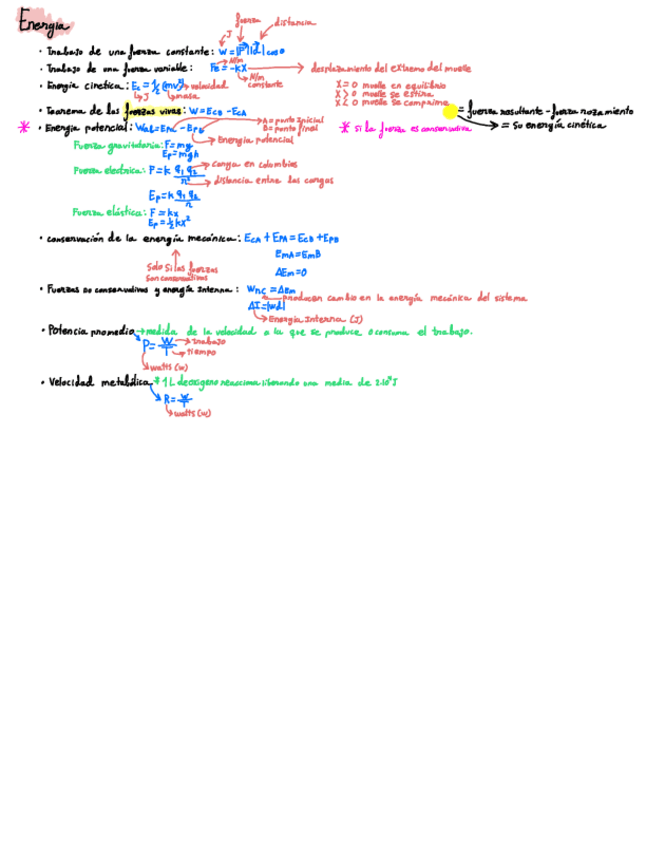 Energía
fuerza
distancia
J
• Trabajo de una fuerza constante: W = |F||d| cos θ
N/m
• Trabajo de una fuerza variable: Fe = -kX → desplazamiento del extremo del muelle
N/m
constante
• Energía cinetica: Ec = ½ (mv²) → velocidad
J
masa
X = 0 muelle en equilibrio
X > 0 muelle se estira
X < 0 muelle se comprime
• Teorema de las fuerzas vivas: W = ECB - ECA
= fuerza resultante - fuerza rozamiento
= So energía cinética
* • Energía potencial: WAB = EPA - EPB
A = punto inicial
B = punto final
Energía potencial
* si la fuerza es conservativa
Fuerza gravitatoria: F = mg
Ep = mgh
Fuerza electrica: F = k q1 q2 / r²
carga en culombios
distancia entre las cargas
Ep = k q1 q2 / r
Fuerza elástica: F = kx
Ep = ½ kx²
• conservación de la energía mecánica: ECA + EPA = ECB + EPB
EmA = EmB
Solo si las fuerzas
son conservativas
ΔEm = 0
• Fuerzas no conservativas y energía interna: Wnc = ΔEm
producen cambio en la energía mecánica del sistema
ΔI = |Wd|
Energía Interna (J)
• Potencia promedio → medida de la velocidad a la que se produce o consume el trabajo.
P = W / T
trabajo
tiempo
watts (w)
• Velocidad metabólica * 1 L de oxigeno reacciona liberando una media de 2·10⁴ J
R = W / T
watts (w)